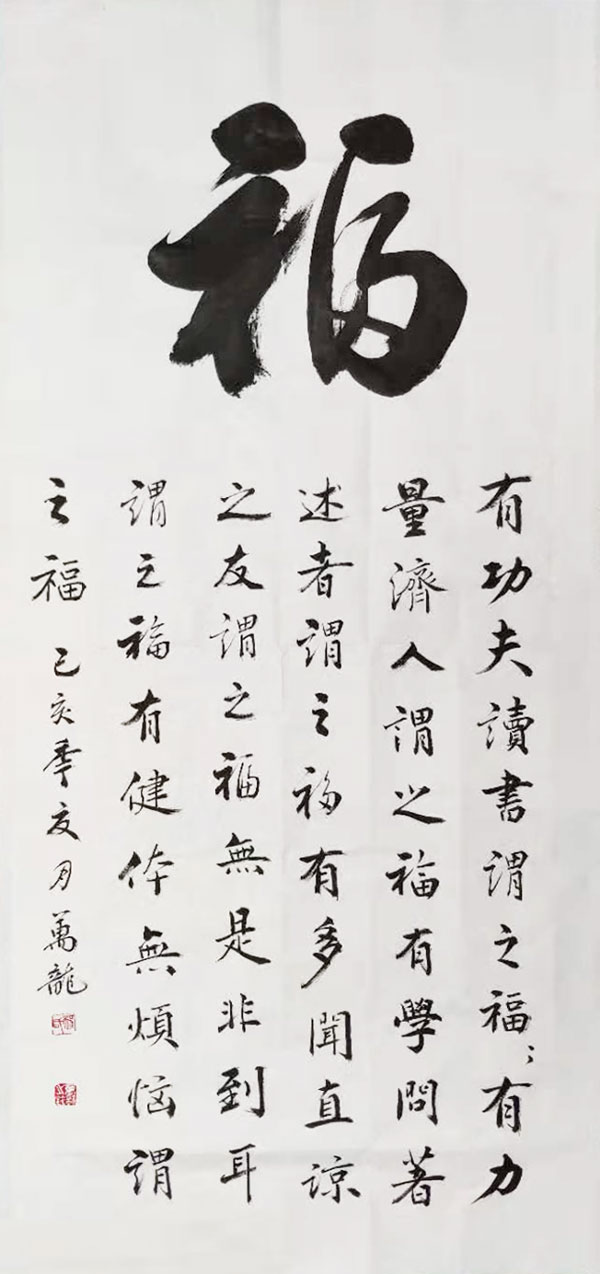 福
有功夫讀書謂之福有力
量濟人謂之福有學問著
述者謂之福有多聞直諒
之友謂之福無是非到耳
謂之福有健体無煩恼謂
之福 己亥季夏月萬龍